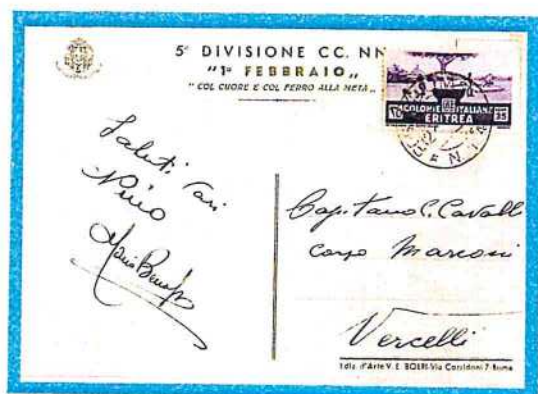 5ª DIVISIONE CC. NN
"1º FEBBRAIO"
"COL CUORE E COL FERRO ALLA META"
COLONIE ITALIANE
ERITREA
35
Saluti cari
Nino
Mario
Capitano C. Cavalli
corso Marconi
Vercelli
Ediz. d'Arte V. E. BOERI-Via Corridoni 7-Roma